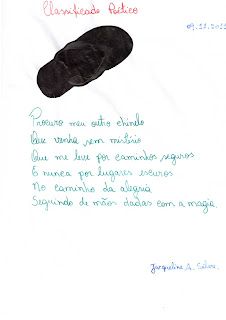 Classificado Poético
09.11.2011
Procuro meu outro chinelo
Que venha sem mistério
Que me leve por caminhos seguros
E nunca por lugares escuros
No caminho da alegria
Seguindo de mãos dadas com a magia.
Jacqueline A.